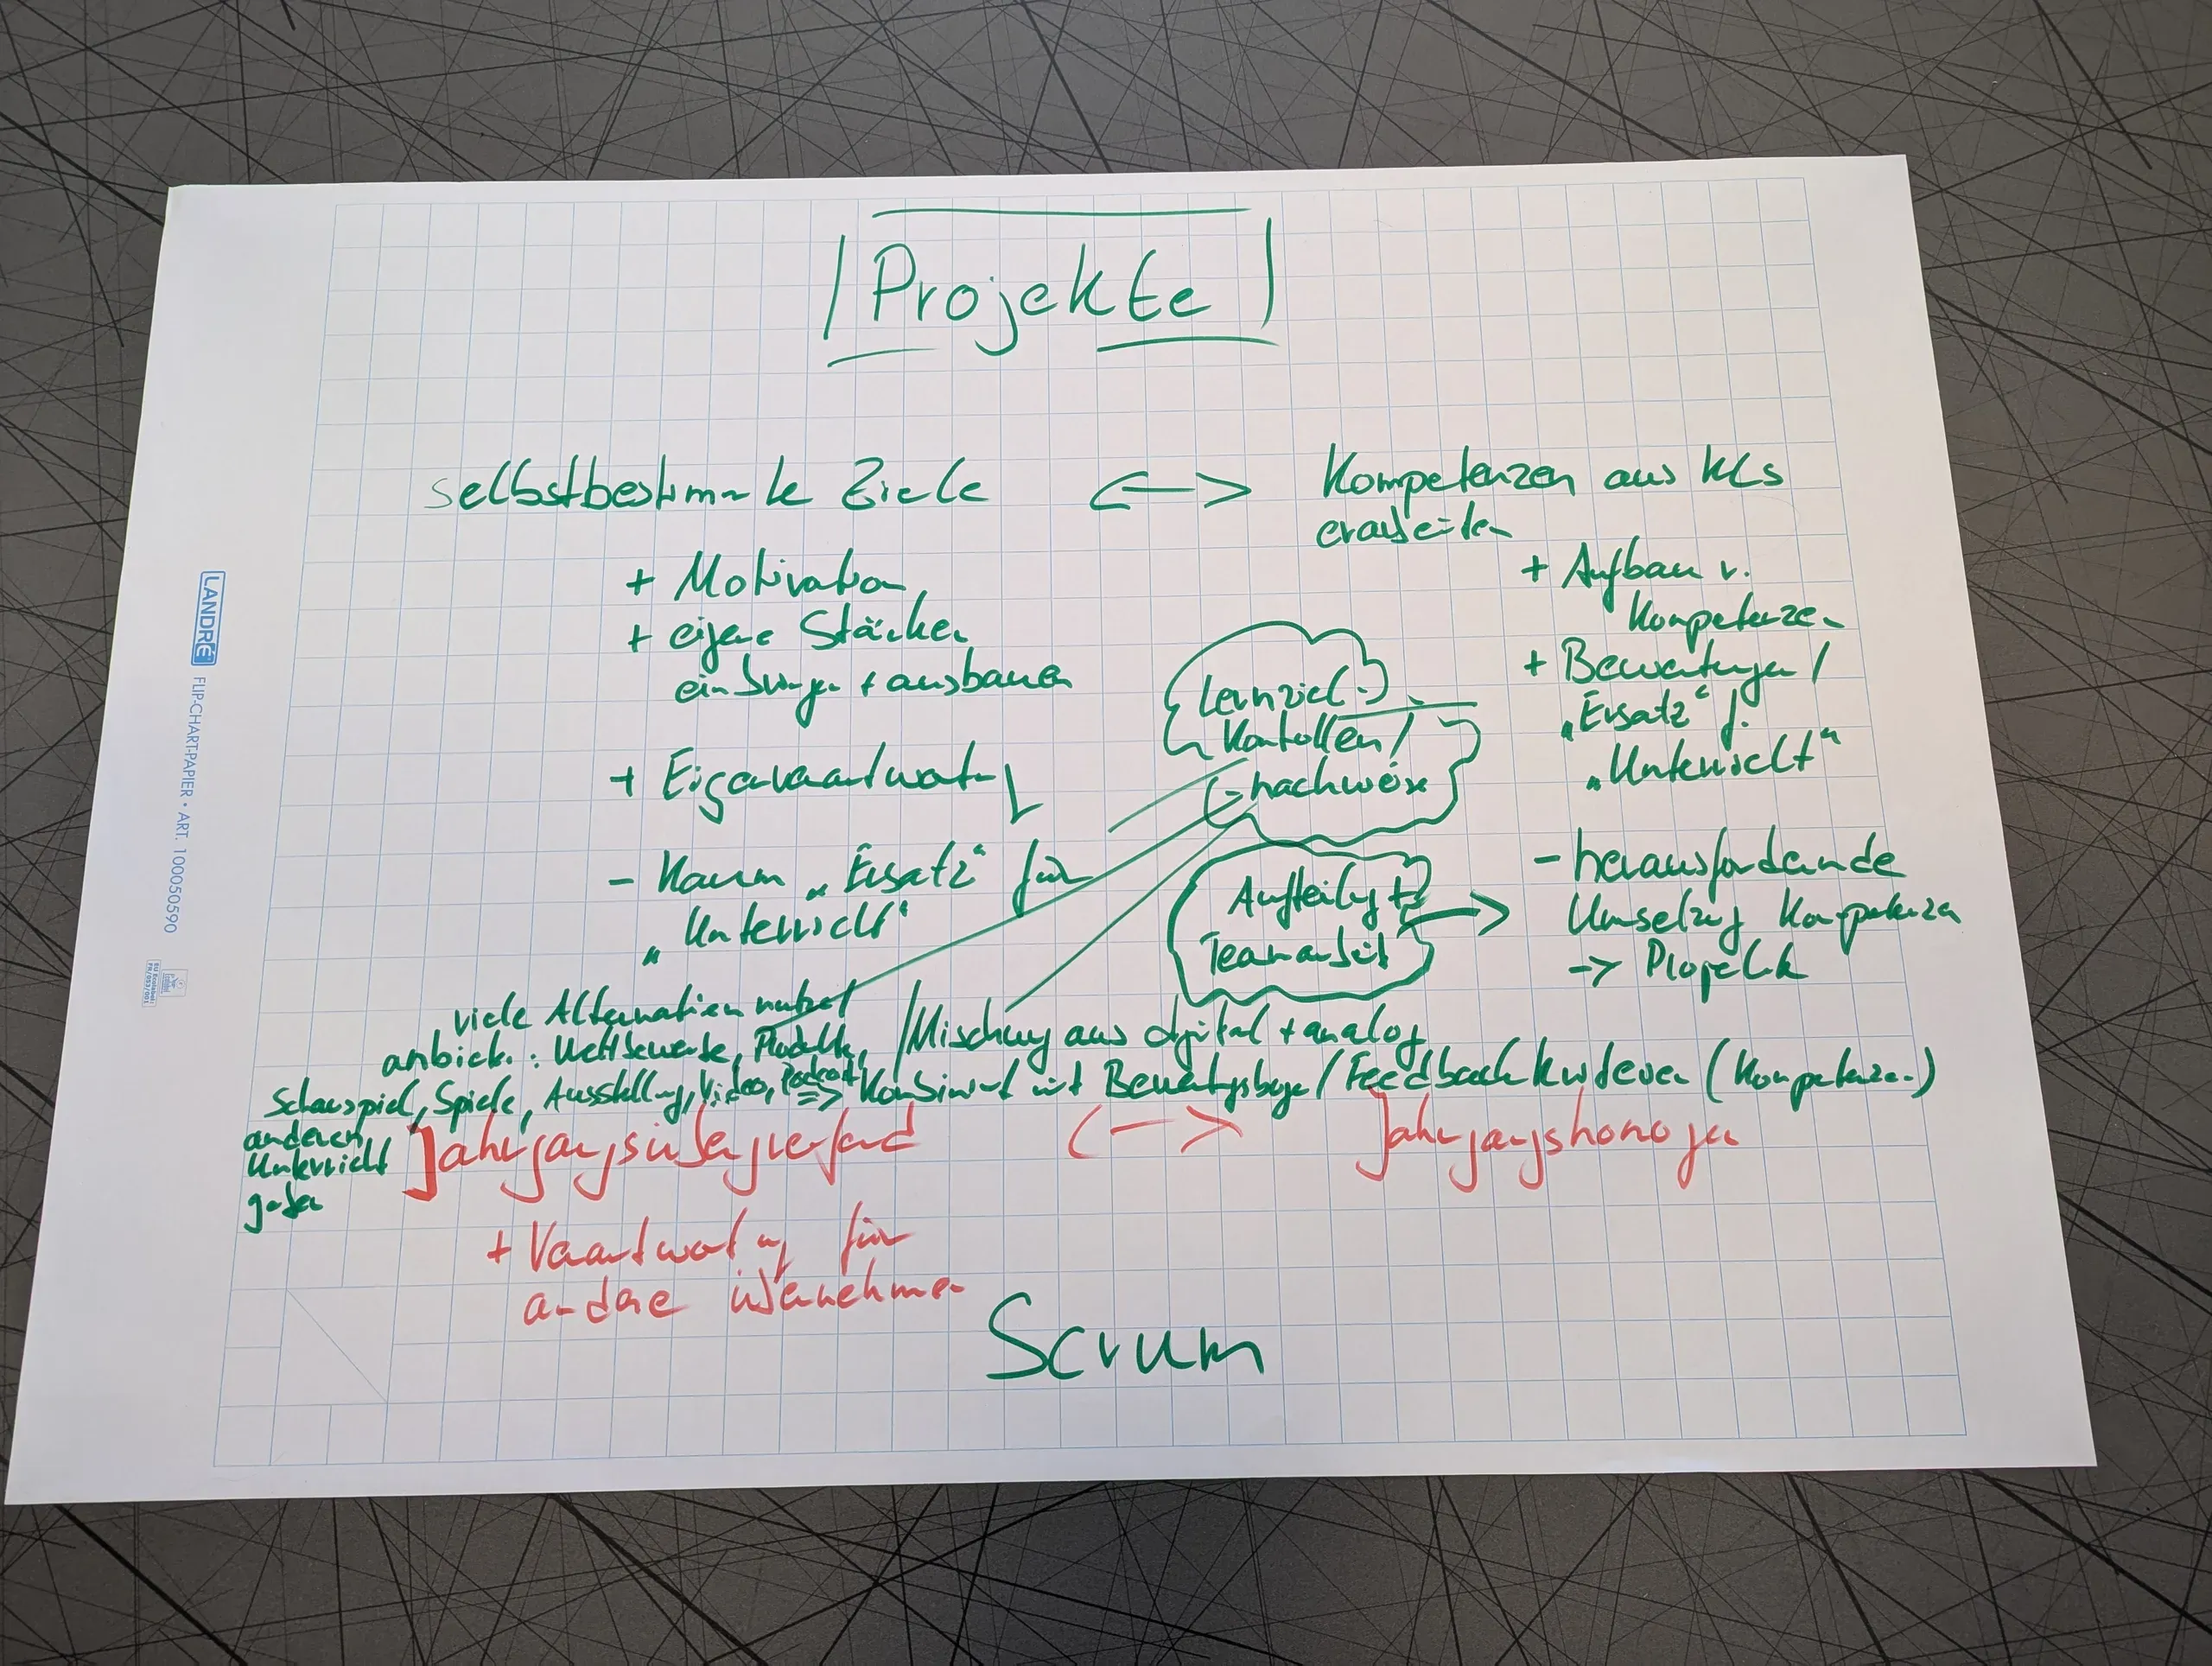 Projekte
selbstbestimmte Ziele <-> Kompetenzen aus KCs
erarbeiten
+ Motivation
+ eigene Stärken
einbringen + ausbauen
+ Eigenverantwort
- Kaum „Ersatz“ für
„Unterricht“
+ Aufbau v.
Kompetenzen
+ Bewertungen /
„Ersatz“ f.
„Unterricht“
- herausfordernde
Umsetzung Kompetenzen
-> Projekt
Lernziel-
Kontrollen /
-nachweise
Aufteilung +
Teamarbeit
viele Alternativen
anbiet.: Wettbewerbe, Produkte,
Schauspiel, Spiele, Ausstellung, Video, Podcast
anderen
Unterricht
geben
/ Mischung aus digital + analog
=> Kombiniert mit Bewertungsbogen / Feedback (Kompetenzen)
Jahrgangsübergreifend <-> Jahrgangshomogen
+ Verantwortung für
andere übernehmen
Scrum
LANDRÉ
FLIP-CHART-PAPIER • ART. 100050590